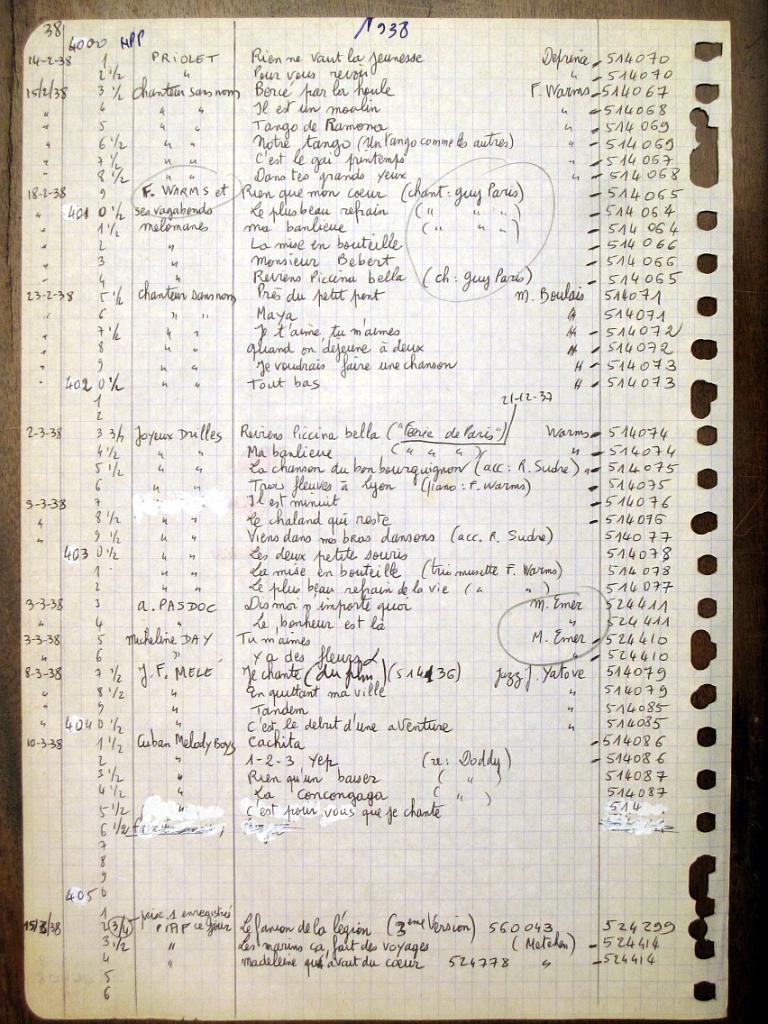 38 1938
4000 HPP
14-2-38 1 PRIOLET Rien ne vaut la jeunesse Deprince 514070
" 2 1/2 " Pour vous revoir " 514070
15/2/38 3 1/2 Chanteur sans nom Bercé par la houle F. Warms 514067
" 4 " " Il est un moulin " 514068
" 5 " " Tango de Ramona " 514069
" 6 1/2 " " Notre tango (Un tango comme les autres) 514069
" 7 1/2 " " C'est le gai printemps " 514067
" 8 1/2 " " Dans tes grands yeux " 514068
18-2-38 9 F. WARMS et Rien que mon coeur (chant: guy Paris) 514065
" 401 0 1/2 ses vagabonds Le plus beau refrain (" " ") 514064
" 1 1/2 mélomanes ma banlieue (" " ") 514064
" 2 " La mise en bouteille 514066
" 3 " Monsieur Bébert 514066
" 4 " Reviens Piccina bella (ch: guy Paris) 514065
23-2-38 5 1/2 chanteur sans nom Près du petit pont M. Boulais 514071
" 6 " " Maya " 514071
" 7 1/2 " " Je t'aime, tu m'aimes " 514072
" 8 " " quand on déjeune à deux " 514072
" 9 " " Je voudrais faire une chanson " 514073
" 402 0 1/2 " " Tout bas " 514073
1
2 21-12-37
2-3-38 3 3/4 Joyeux Drilles Reviens Piccina bella ("Féerie de Paris") Warms 514074
" 4 1/2 " " Ma banlieue (" " ") " 514074
" 5 1/2 " " La chanson du bon bourguignon (acc: R. Sudre) " 514075
" 6 " " Trois fleuves à Lyon (piano: F. Warms) 514075
9-3-38 7 Il est minuit 514076
" 8 1/2 " " Le chaland qui reste 514076
" 9 1/2 " " Viens dans mes bras dansons (acc. R. Sudre) 514077
" 403 0 1/2 " " Les deux petits souris 514078
" 1 " " La mise en bouteille (trio musette F. Warms) 514078
" 2 " " Le plus beau refrain de la vie (" ") 514077
3-3-38 3 A. PASDOC Dis moi n'importe quoi M. Emer 524411
" 4 " Le bonheur est là " 524411
3-3-38 5 Micheline DAY Tu m'aimes M. Emer 524410
" 6 " Y a des fleurs " 524410
8-3-38 7 1/2 J. F. MELÉ Je chante (du film) (514136) Jazz J. Yatove 514079
" 8 1/2 " En quittant ma ville " 514079
" 9 " Tandem " 514085
" 404 0 1/2 " C'est le début d'une aventure " 514085
10-3-38 1 1/2 Cuban Melody Boys Cachita 514086
2 " 1-2-3 Yep (re: Doddy) 514086
3 1/2 " Rien qu'un baiser ( " ) 514087
4 1/2 " La Concongaga ( " ) 514087
5 1/2 " c'est pour vous que je chante 514
6 1/2
7
8
9
405 0
1 prise 1 enregistrée
15/3/38 2 (3/4) PIAF ce jour Le fanion de la légion (3ème Version) 560043 524299
3 1/2 " Les marins ça fait des voyages (Metehen) 524414
4 " Madeleine qu'avait du coeur 524778 " 524414
5
6